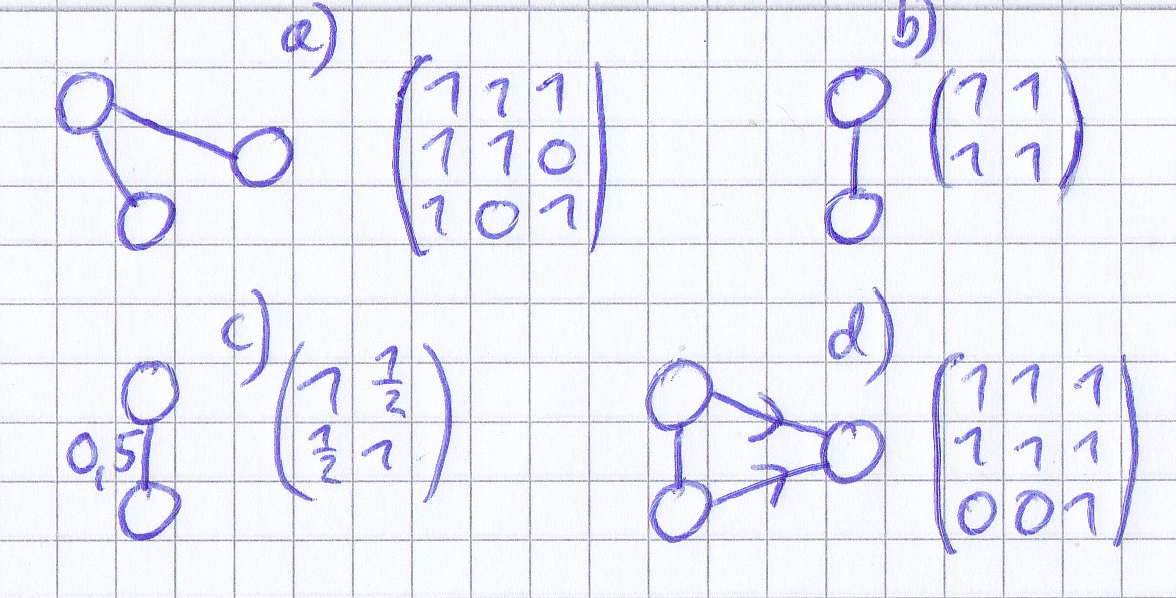 a)
1 1 1
1 1 0
1 0 1
b)
1 1
1 1
c)
0,5
1 1/2
1/2 1
d)
1 1 1
1 1 1
0 0 1